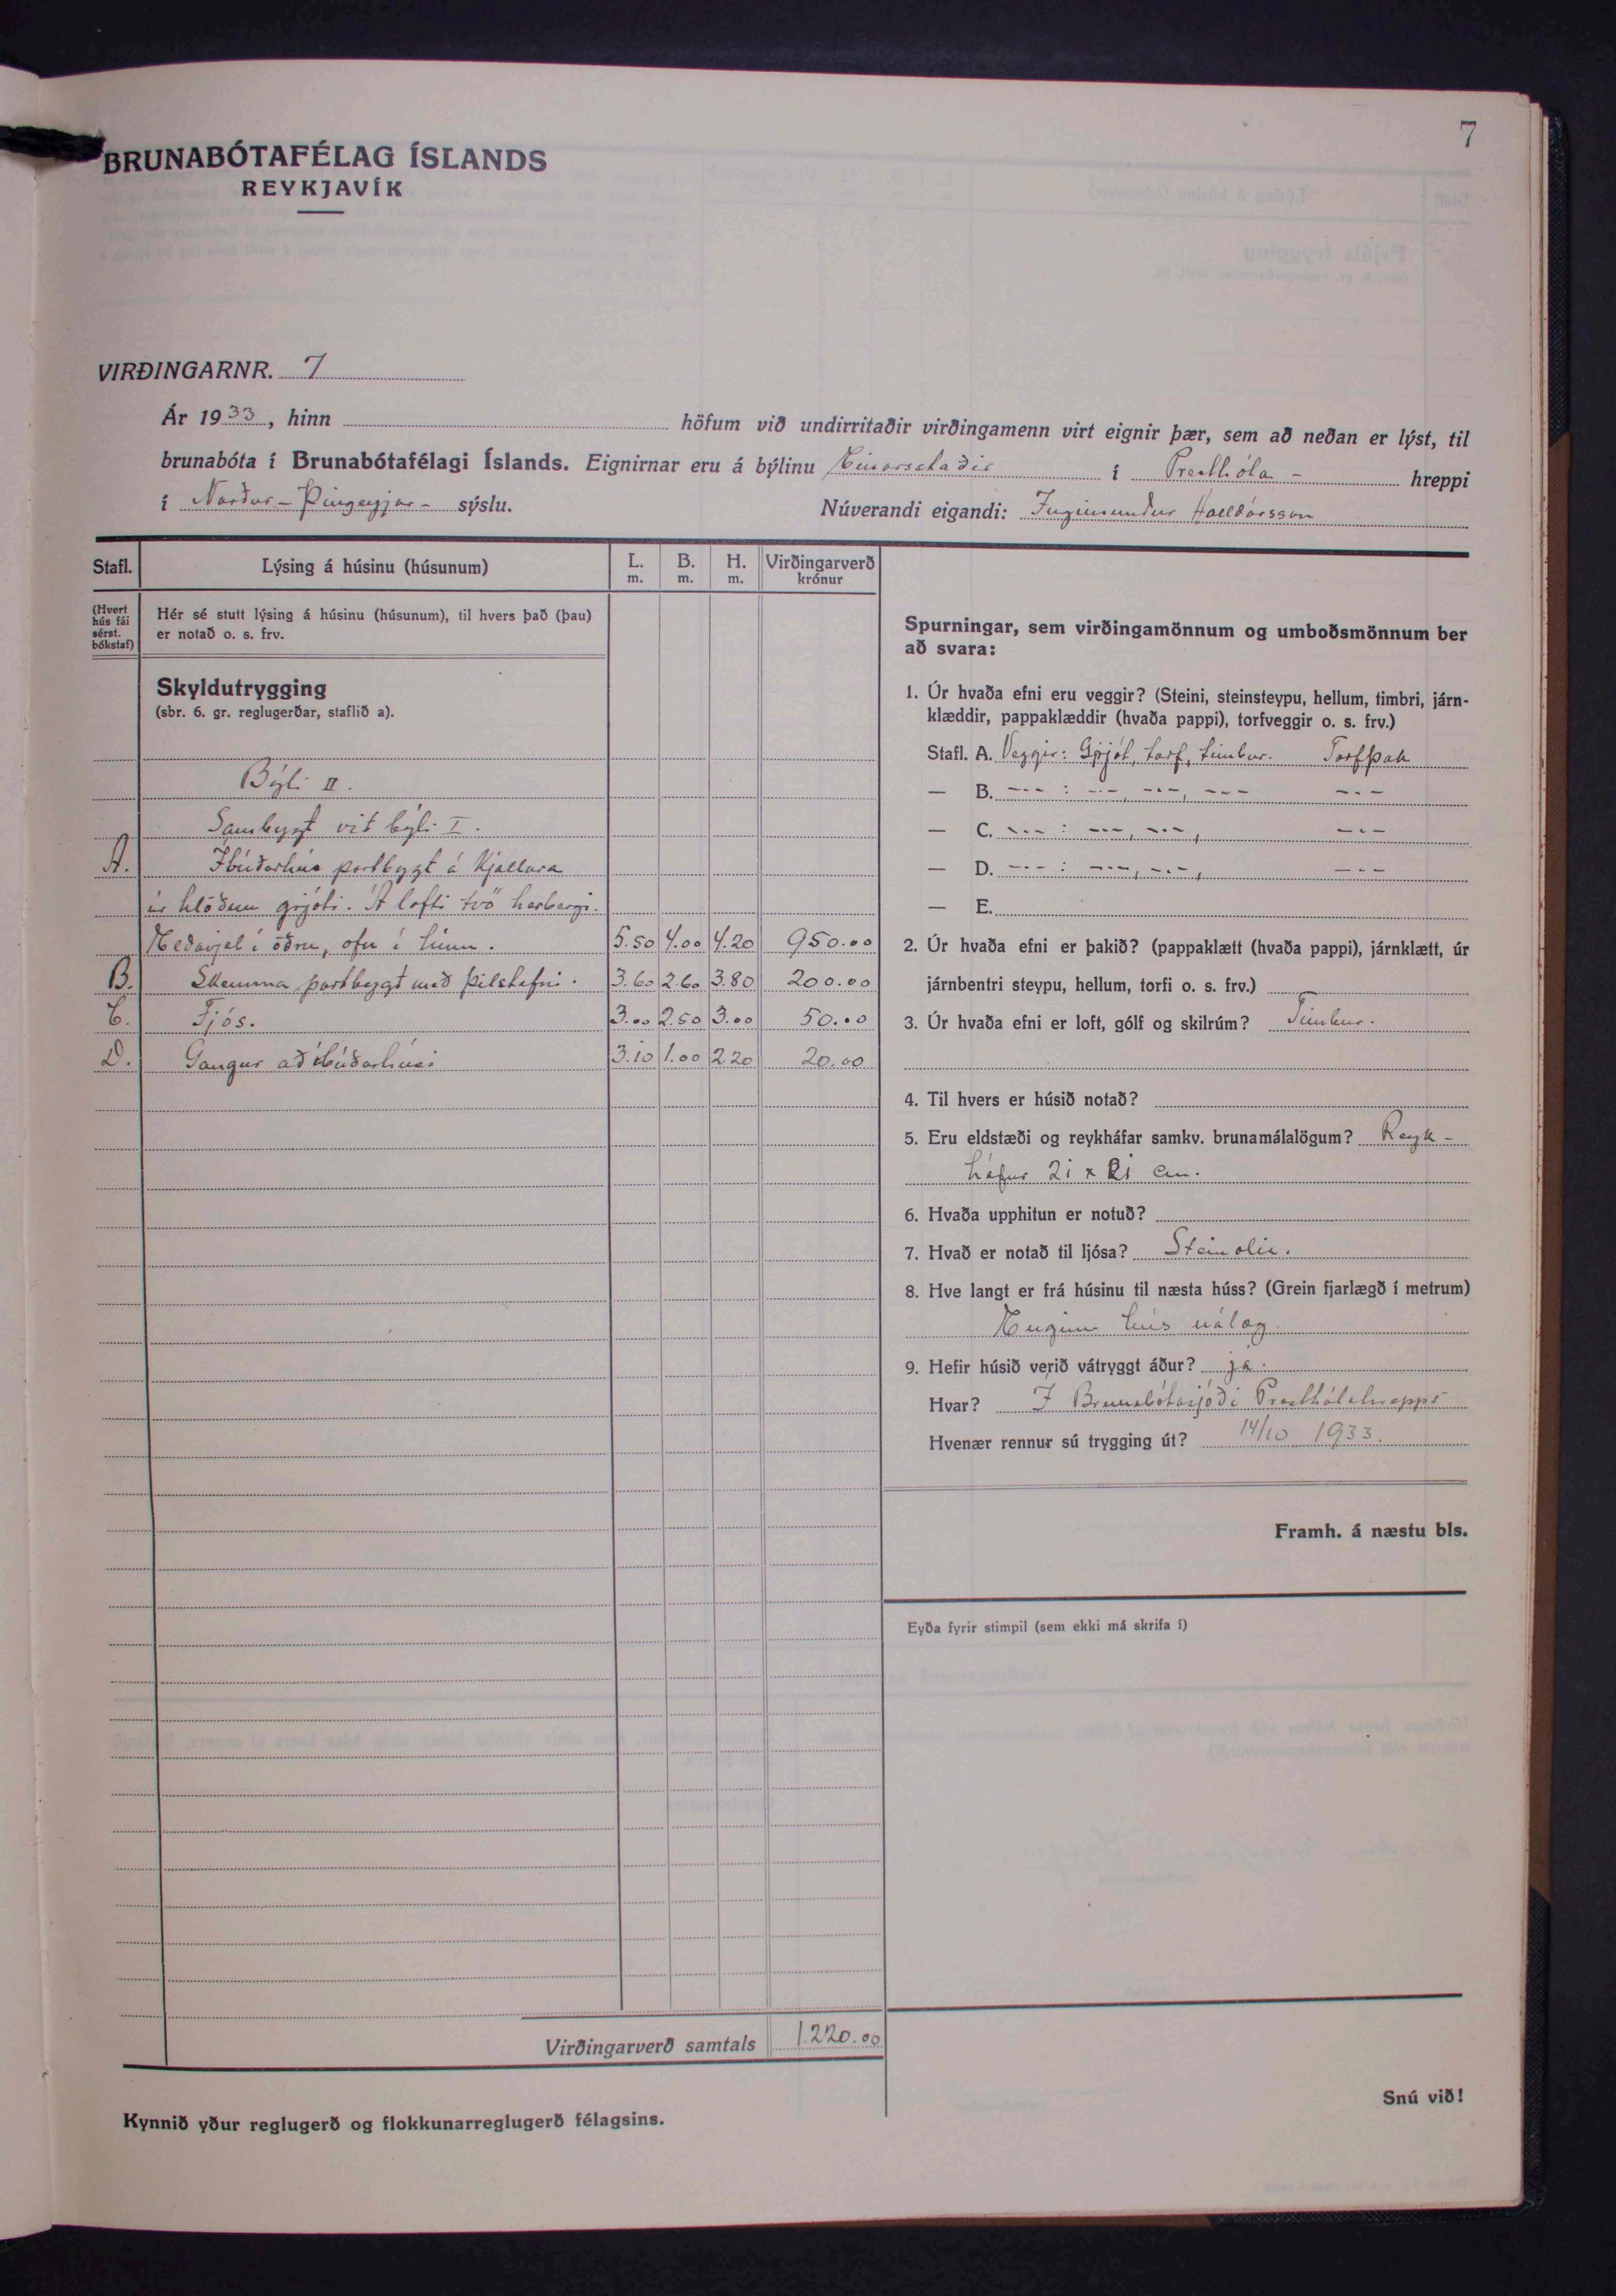 7
BRUNABÓTAFÉLAG ÍSLANDS
REYKJAVÍK
VIRÐINGARNR. 7
Ár 1933, hinn höfum við undirritaðir virðingamenn virt eignir þær, sem að neðan er lýst, til
brunabóta í Brunabótafélagi Íslands. Eignirnar eru á býlinu Einarsstaðir í Presthóla- hreppi
í Norður-Þingeyjar- sýslu. Núverandi eigandi: Ingimundur Halldórsson
Stafl. Lýsing á húsinu (húsunum) L. m. B. m. H. m. Virðingarverð krónur
(Hvert hús fái sérst. bókstaf)
Hér sé stutt lýsing á húsinu (húsunum), til hvers það (þau)
er notað o. s. frv.
Skyldutrygging
(sbr. 6. gr. reglugerðar, staflið a).
Býli II.
Sambyggt við býli I.
A. Íbúðarhús portbyggt á kjallara
úr hlöðnu grjóti. Á lofti tvö herbergi.
Eldavjel í öðru, ofn í hinu. 5.50 4.00 4.20 950.00
B. Skemma portbyggt með þilstafni. 3.60 2.60 3.80 200.00
C. Fjós. 3.00 2.50 3.00 50.00
D. Gangur að íbúðarhúsi 3.10 1.00 2.20 20.00
Virðingarverð samtals 1.220.00
Kynnið yður reglugerð og flokkunarreglugerð félagsins.
Spurningar, sem virðingamönnum og umboðsmönnum ber
að svara:
1. Úr hvaða efni eru veggir? (Steini, steinsteypu, hellum, timbri, járn-
klæddir, pappaklæddir (hvaða pappi), torfveggir o. s. frv.)
Stafl. A. Veggir: Grjót, torf, timbur. Torfþak
— B. --- : ---, ---, --- ---
— C. --- : ---, ---, ---
— D. --- : ---, ---, ---
— E.
2. Úr hvaða efni er þakið? (pappaklætt (hvaða pappi), járnklætt, úr
járnbentri steypu, hellum, torfi o. s. frv.)
3. Úr hvaða efni er loft, gólf og skilrúm? Timbur.
4. Til hvers er húsið notað?
5. Eru eldstæði og reykháfar samkv. brunamálalögum? Reyk-
háfur 21 x 21 cm.
6. Hvaða upphitun er notuð?
7. Hvað er notað til ljósa? Steinolía.
8. Hve langt er frá húsinu til næsta húss? (Grein fjarlægð í metrum)
Engin hús nálæg
9. Hefir húsið verið vátryggt áður? já.
Hvar? Í Brunabótasjóði Presthólahrepps
Hvenær rennur sú trygging út? 14/10 1933.
Framh. á næstu bls.
Eyða fyrir stimpil (sem ekki má skrifa í)
Snú við!